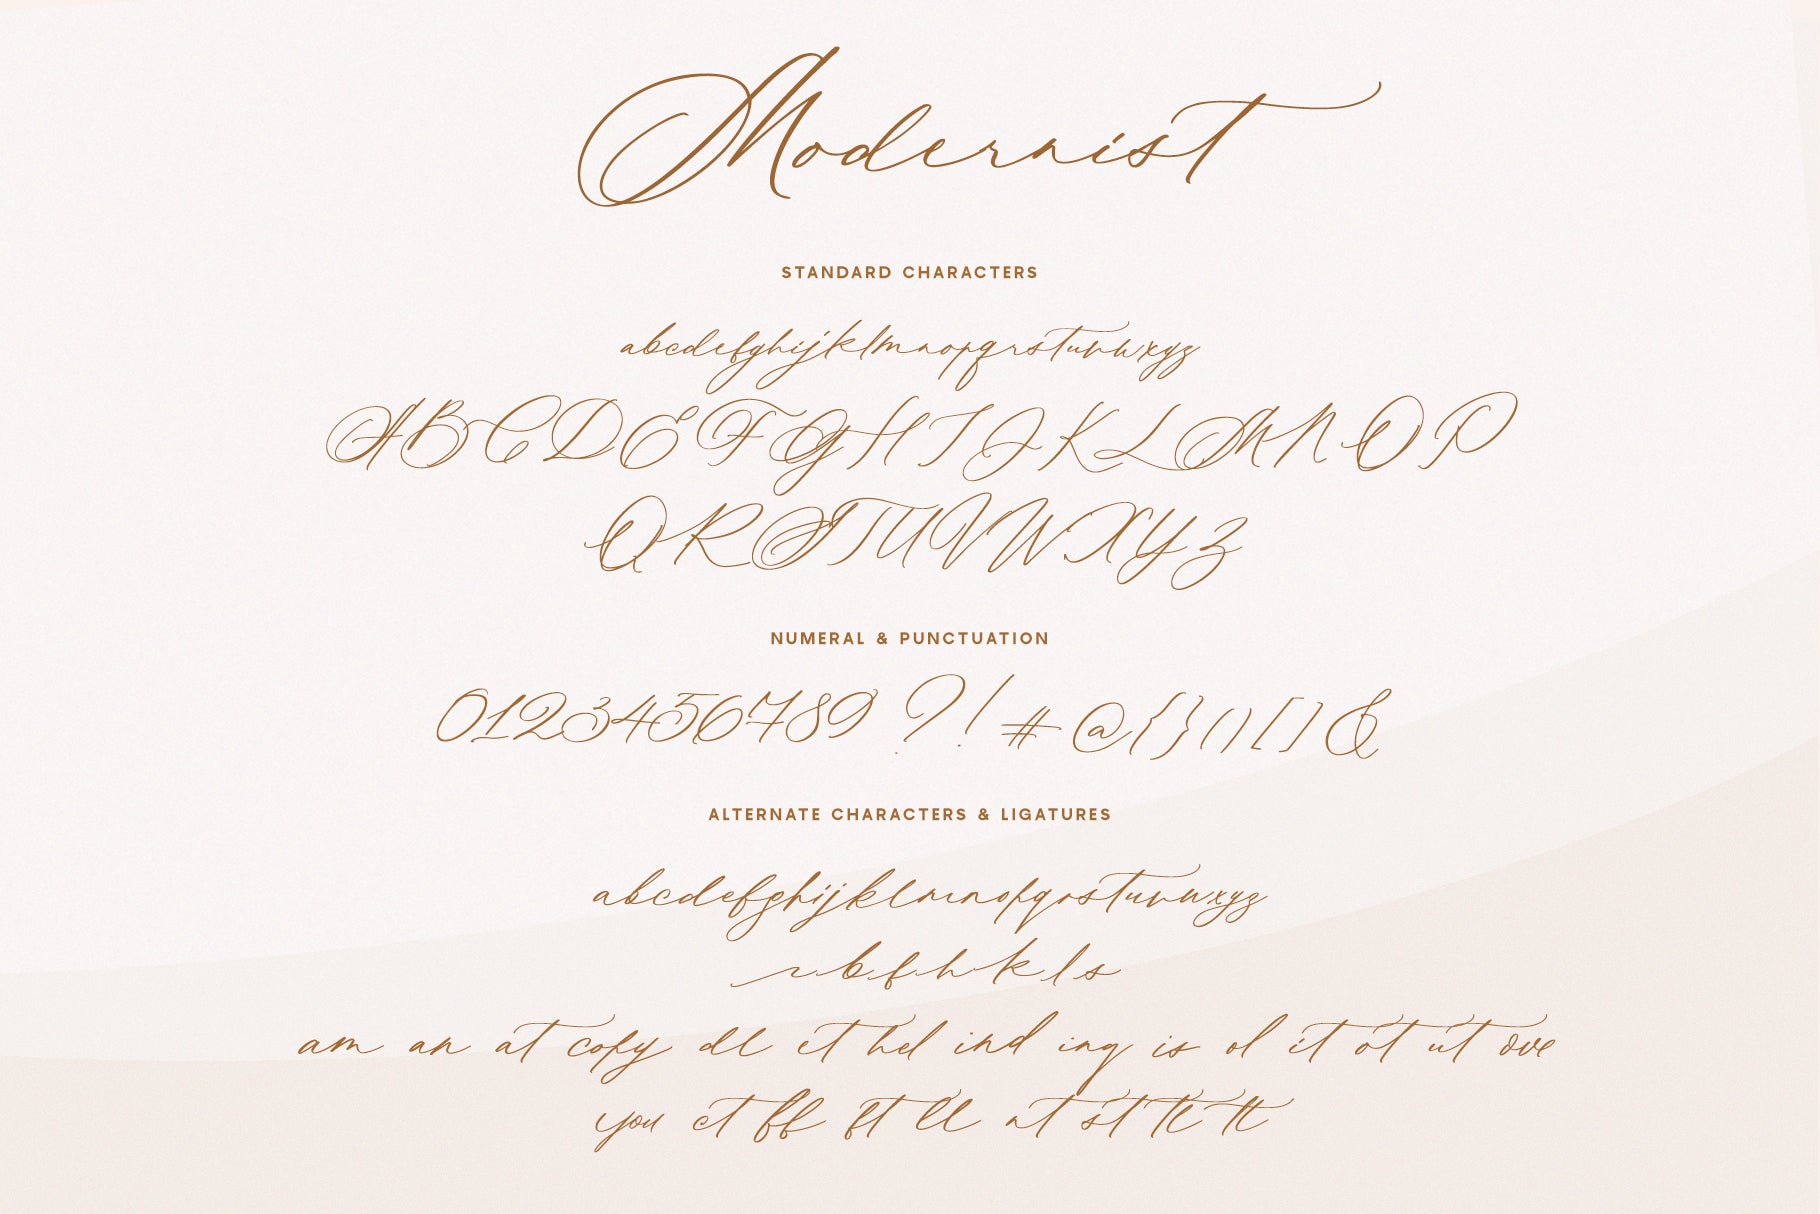 Modernist
STANDARD CHARACTERS
abcdefghijklmnopqrstuvwxyz
ABCDEFGHIJKLMNOP
QRSTUVWXYZ
NUMERAL & PUNCTUATION
0123456789 ?! # @{}()[]&
ALTERNATE CHARACTERS & LIGATURES
abcdefghijklmnopqrstuvwxyz
r b f h k l s
am an at copy dl et hel ind ing is ol it ot ut ove
you ct ff ft ll nt st tl tt